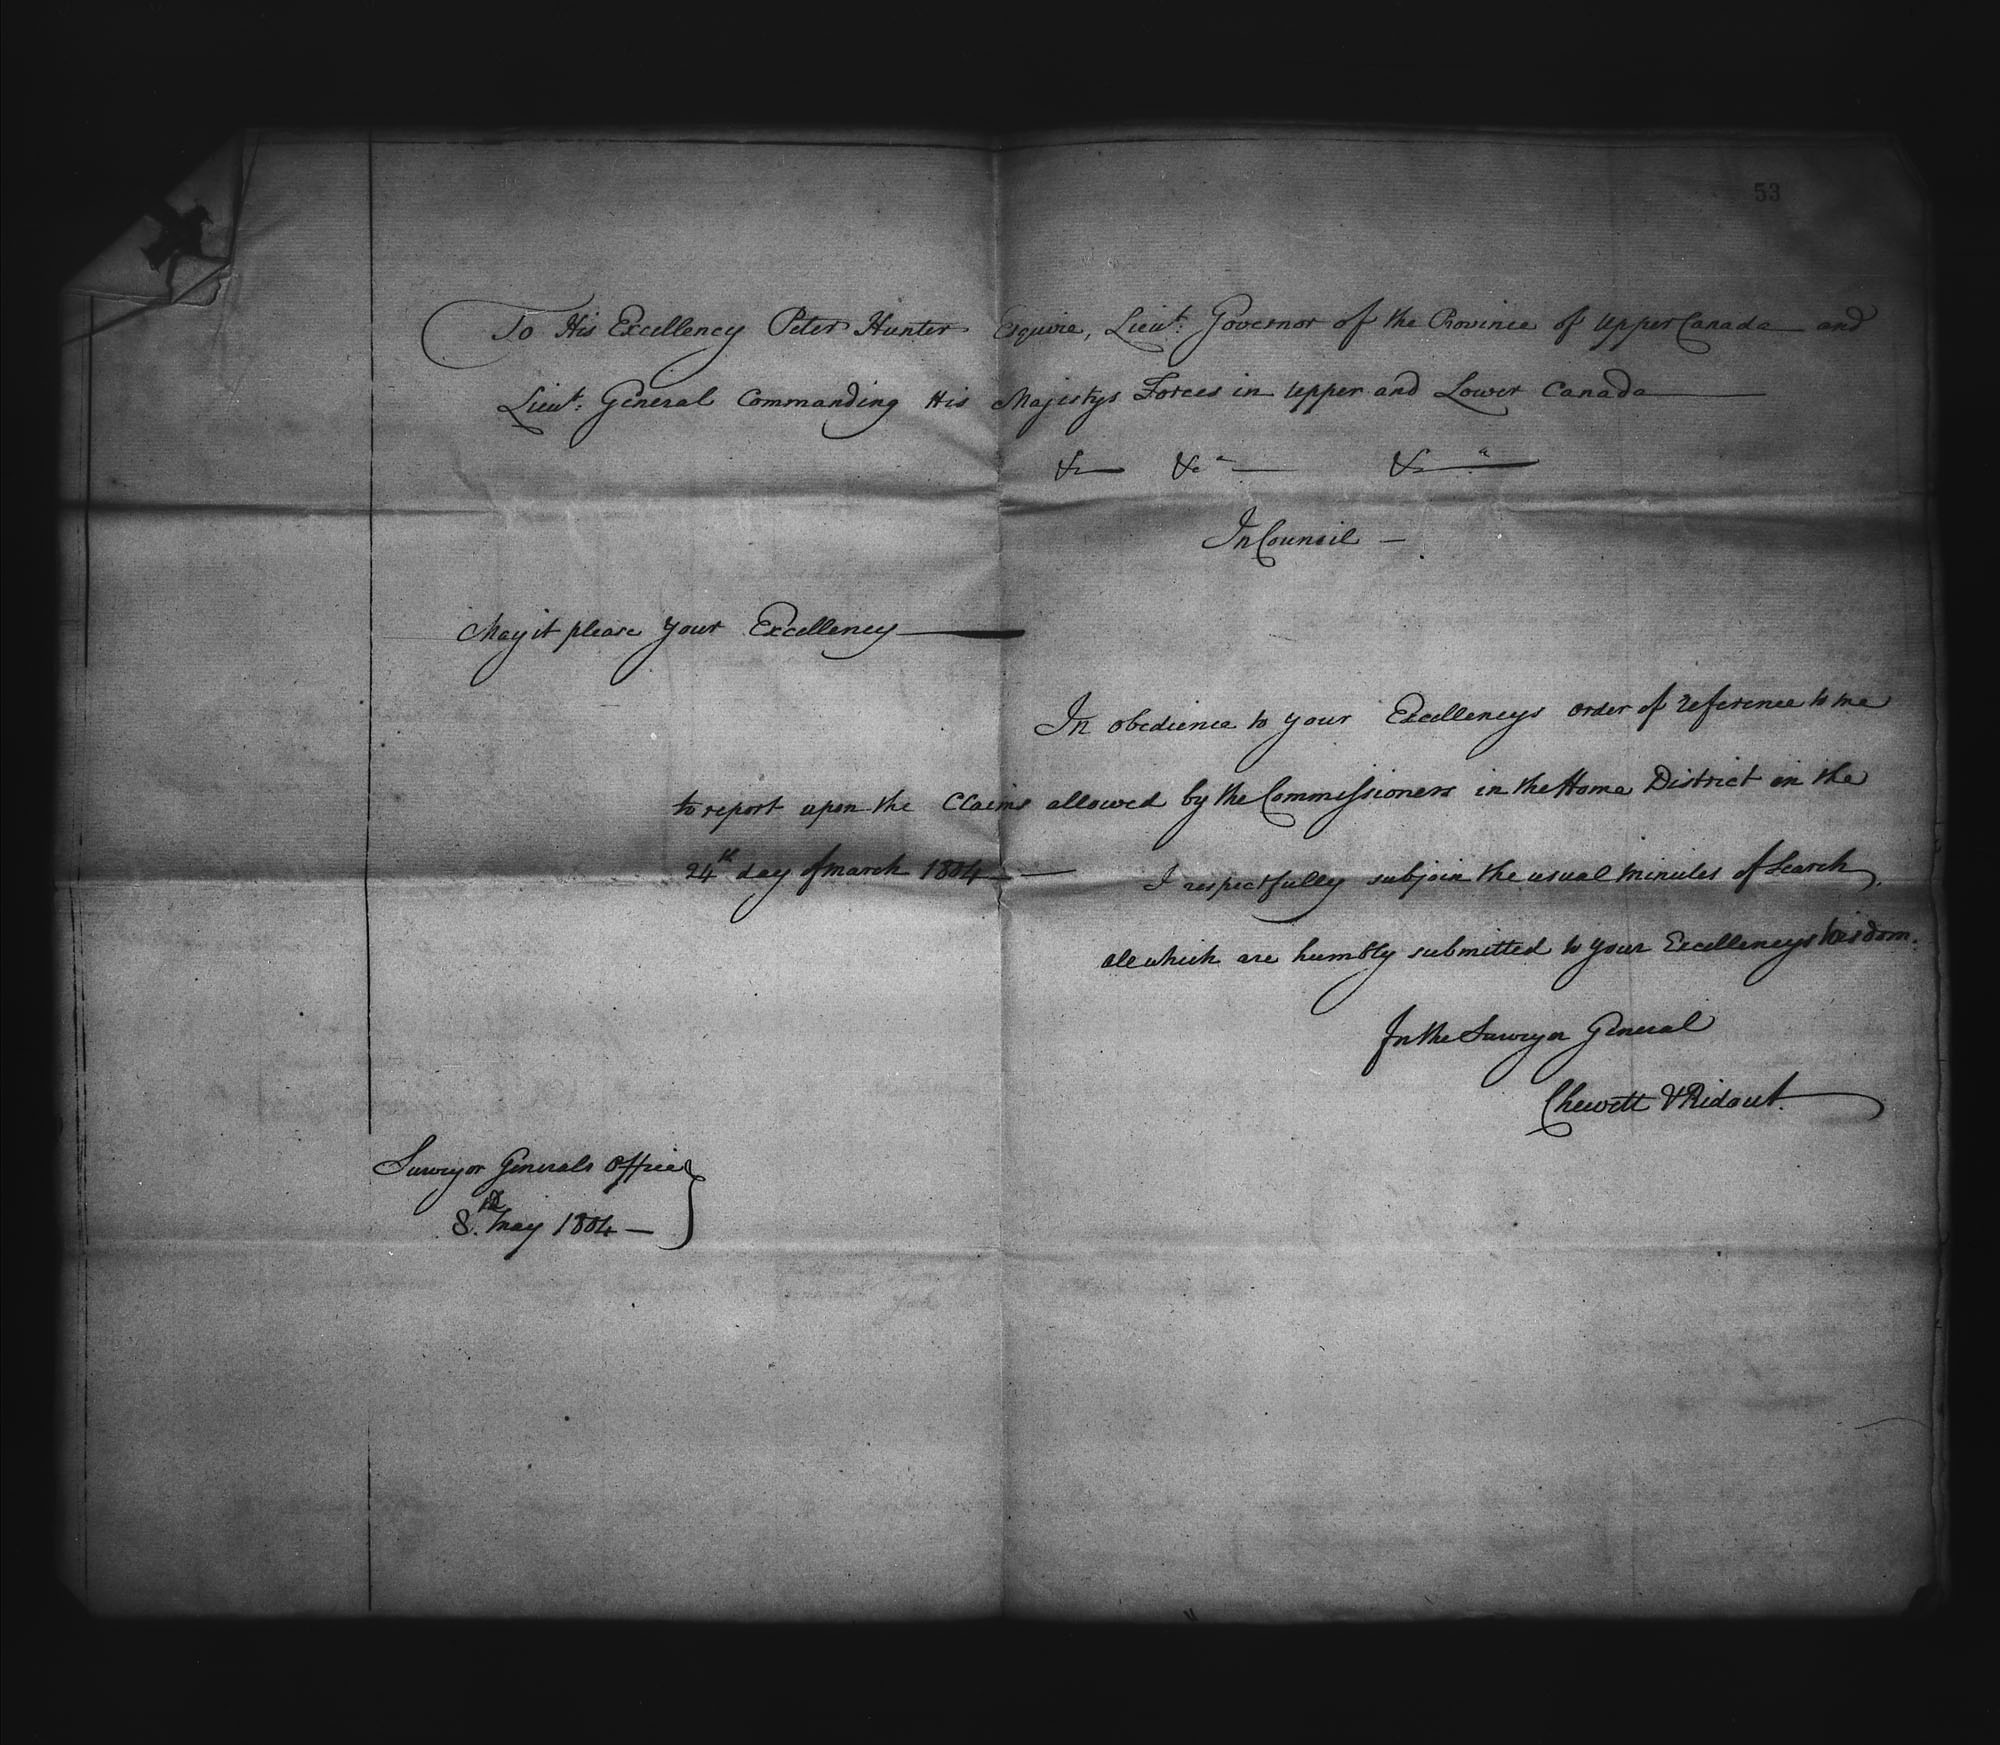 53
To His Excellency Peter Hunter Esquire, Lieut. Governor of the Province of Upper Canada and
Lieut. General Commanding His Majestys Forces in Upper and Lower Canada
&c &ca &ca
In Council
May it please your Excellency
In obedience to your Excellencys order of reference to me
to report upon the Claims allowed by the Commissioners in the Home District on the
24th day of March 1804 I respectfully subjoin the usual minutes of Search,
all which are humbly submitted to your Excellencys Wisdom.
For the Surveyor General
Chewett & Ridout.
Surveyor Generals Office
8th May 1804